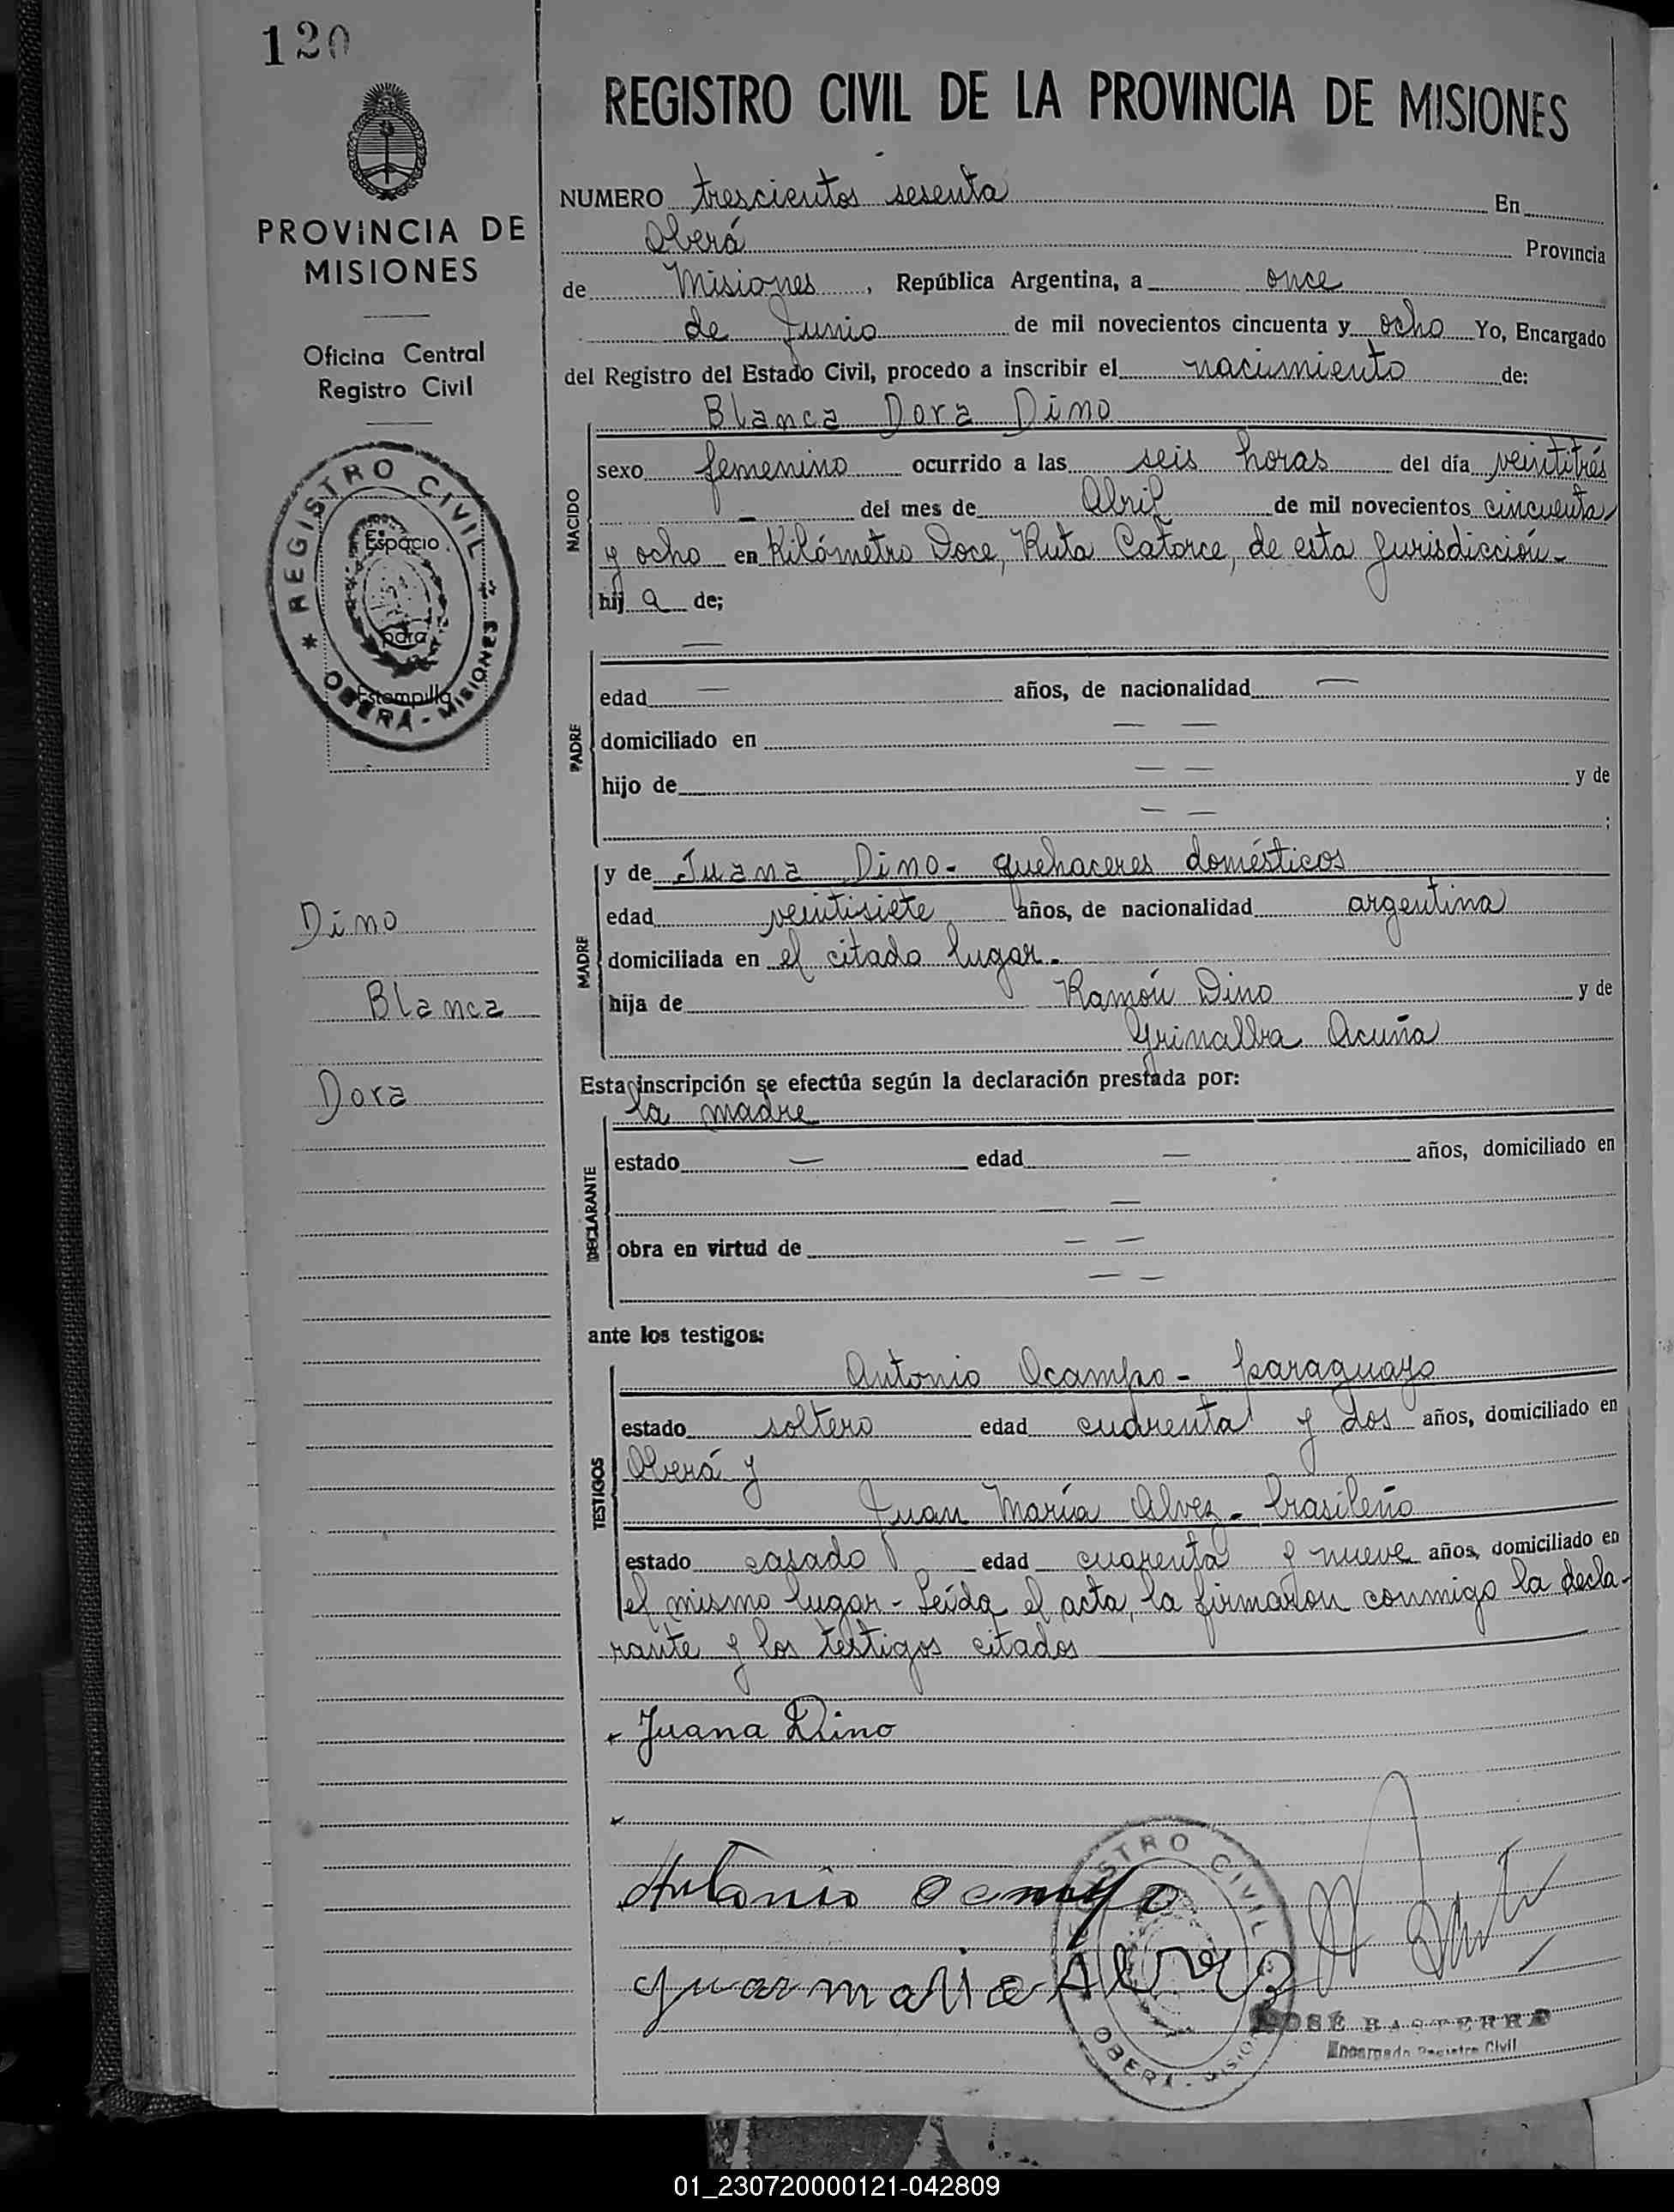 120
PROVINCIA DE
MISIONES
Oficina Central
Registro Civil
REGISTRO CIVIL
OBERÁ - MISIONES
Espacio
para
Estampilla
Dino
Blanca
Dora
REGISTRO CIVIL DE LA PROVINCIA DE MISIONES
NUMERO trescientos sesenta En
Oberá Provincia
de Misiones, República Argentina, a once
de Junio de mil novecientos cincuenta y ocho Yo, Encargado
del Registro del Estado Civil, procedo a inscribir el nacimiento de:
NACIDO
Blanca Dora Dino
sexo femenino ocurrido a las seis horas del día veintitrés
— del mes de Abril de mil novecientos cincuenta
y ocho en Kilómetro Doce, Ruta Catorce, de esta jurisdicción-
hij a de;
PADRE
—
edad — años, de nacionalidad —
domiciliado en — —
hijo de — — y de
— — ;
MADRE
y de Juana Dino- quehaceres domésticos
edad veintisiete años, de nacionalidad argentina
domiciliada en el citado lugar.
hija de Ramón Dino y de
Grinalba Acuña
Esta inscripción se efectúa según la declaración prestada por:
DECLARANTE
la madre
estado — edad — años, domiciliado en
—
obra en virtud de — —
— —
ante los testigos:
TESTIGOS
Antonio Ocampo- paraguayo
estado soltero edad cuarenta y dos años, domiciliado en
Oberá y
Juan María Alvez- brasileño
estado casado edad cuarenta y nueve años, domiciliado en
el mismo lugar- Leída el acta, la firmaron conmigo la decla-
rante y los testigos citados
Juana Dino
Antonio Ocampo
Juan maria Alvez
REGISTRO CIVIL
OBERÁ - MISIONES
JOSÉ BASTERRA
Encargado Registro Civil
01_230720000121-042809